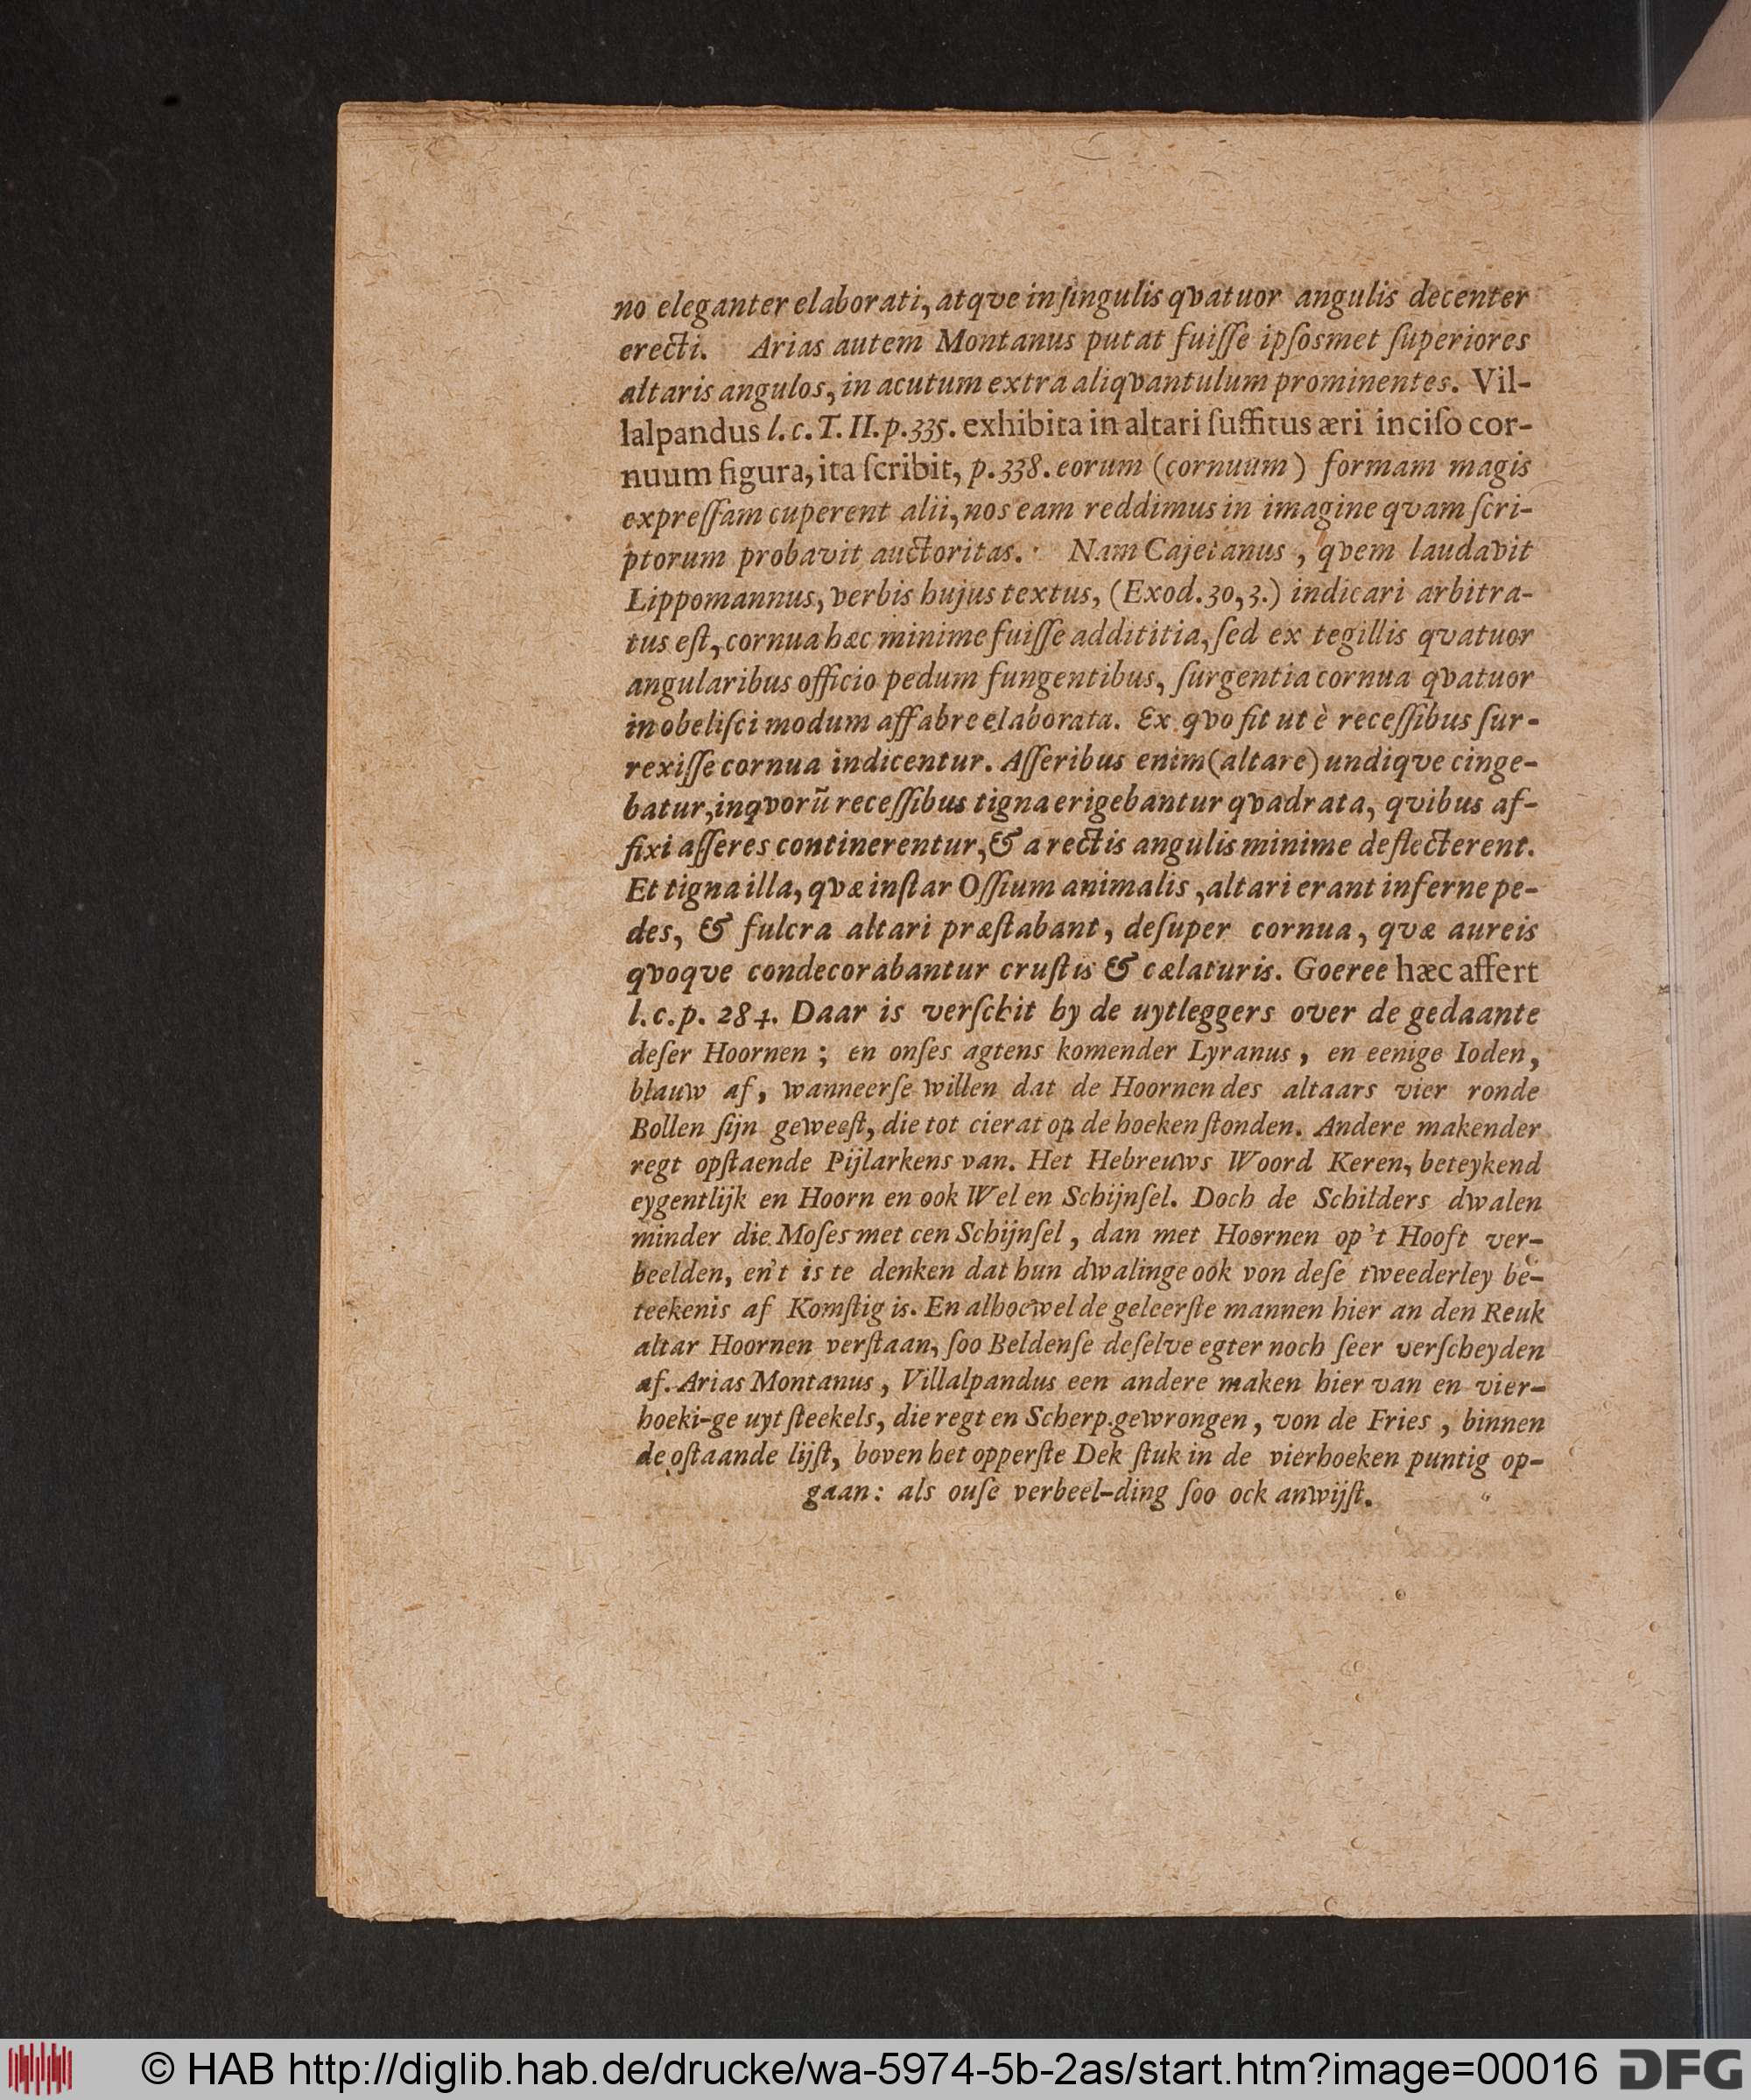 no eleganter elaborati, atqve in ſingulis qvatuor angulis decenter
erecti. Arias autem Montanus putat fuiſſe ipſosmet ſuperiores
altaris angulos, in acutum extra aliqvantulum prominentes. Vil-
lalpandus l. c. T. II. p. 335. exhibita in altari ſuffitus æri inciſo cor-
nuum figura, ita ſcribit, p. 338. eorum (cornuum) formam magis
expreſſam cuperent alii, nos eam reddimus in imagine qvam ſcri-
ptorum probavit auctoritas. Nam Cajetanus, qvem laudavit
Lippomannus, verbis hujus textus, (Exod. 30, 3.) indicari arbitra-
tus eſt, cornua hæc minime fuiſſe addititia, ſed ex tegillis qvatuor
angularibus officio pedum fungentibus, ſurgentia cornua qvatuor
in obeliſci modum affabre elaborata. Ex qvo fit ut è receſſibus ſur-
rexiſſe cornua indicentur. Aſſeribus enim (altare) undiqve cinge-
batur, in qvorũ receſſibus tigna erigebantur qvadrata, qvibus af-
fixi aſſeres continerentur, & a rectis angulis minime deflecterent.
Et tigna illa, qvæ inſtar Oſſium animalis, altari erant inferne pe-
des, & fulcra altari præſtabant, deſuper cornua, qvæ aureis
qvoqve condecorabantur cruſtis & cælaturis. Goeree hæc affert
l. c. p. 284. Daar is verſchit by de uytleggers over de gedaante
deſer Hoornen; en onſes agtens komender Lyranus, en eenige Ioden,
blauw af, wanneerſe willen dat de Hoornen des altaars vier ronde
Bollen ſijn geweeſt, die tot cierat op de hoeken ſtonden. Andere makender
regt opſtaende Pijlarkens van. Het Hebreuws Woord Keren, beteykend
eygentlijk en Hoorn en ook Wel en Schijnſel. Doch de Schilders dwalen
minder die Moſes met cen Schijnſel, dan met Hoornen op 't Hooft ver-
beelden, en't is te denken dat hun dwalinge ook von deſe tweederley be-
teekenis af Komſtig is. En alhoewel de geleerſte mannen hier an den Reuk
altar Hoornen verſtaan, ſoo Beldenſe deſelve egter noch ſeer verſcheyden
af. Arias Montanus, Villalpandus een andere maken hier van en vier-
hoeki-ge uyt ſteekels, die regt en Scherp. gewrongen, von de Fries, binnen
de oſtaande lijſt, boven het opperſte Dek ſtuk in de vierhoeken puntig op-
gaan: als ouſe verbeel-ding ſoo ock anwijſt.
© HAB http://diglib.hab.de/drucke/wa-5974-5b-2as/start.htm?image=00016 DFG